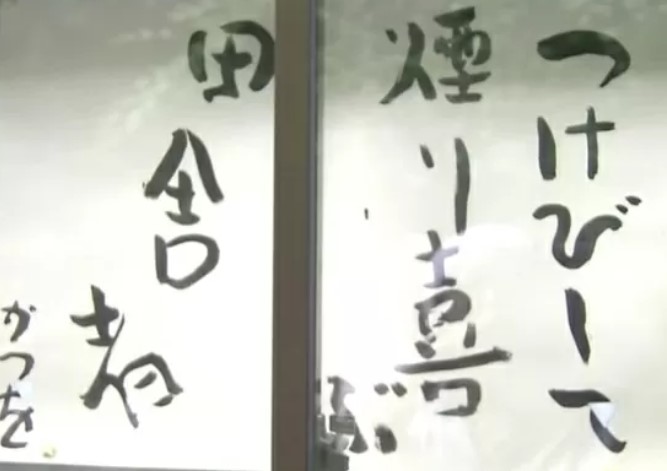 つけびして
煙り喜ぶ
田舎者
かつを